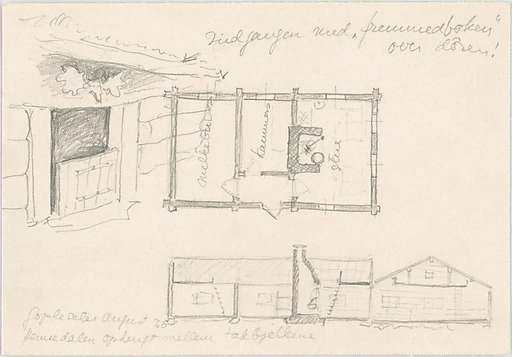 Indgangen med "fremmedboken"
over døren!
melkebu
kammers
stue
august 36
Hemsedalen ophengt mellem takbjelkene